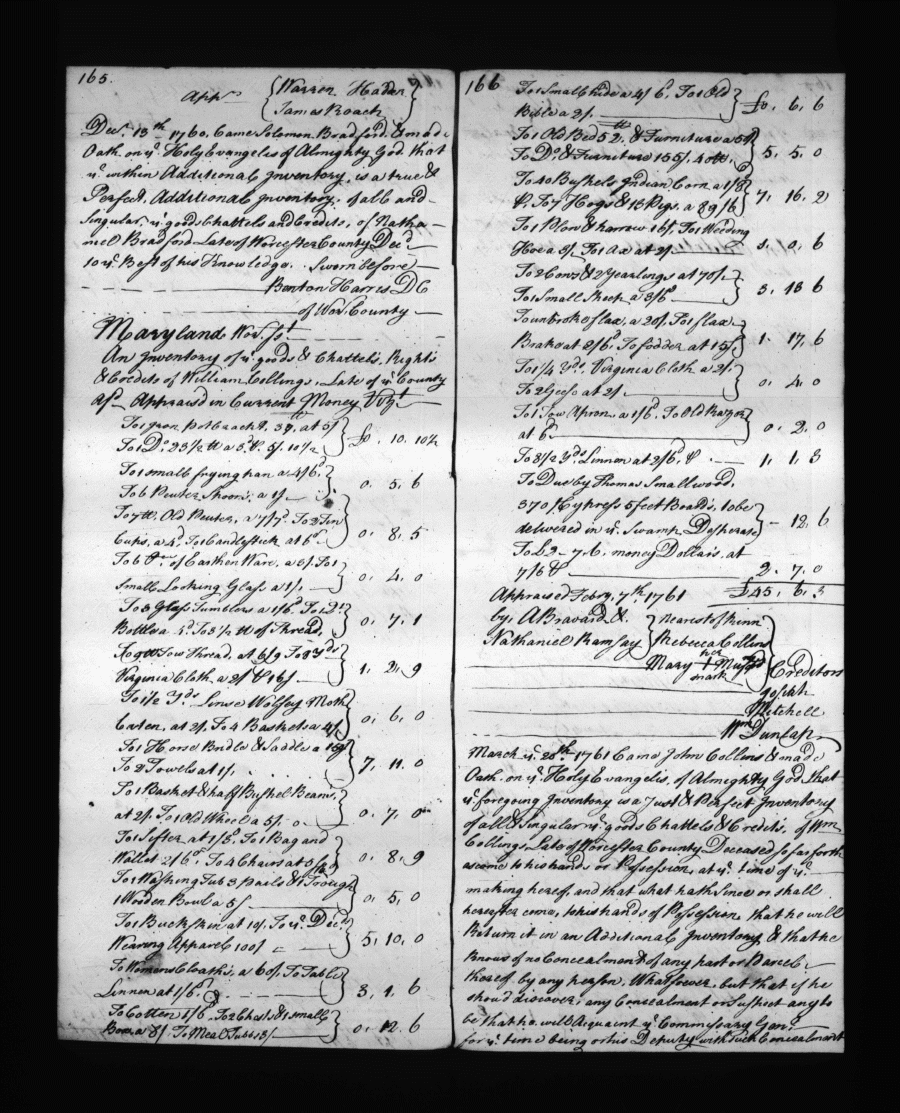 165.
Appr {Warren Hadder
James Roach}
Decr. 13th 1760. Came Solomon Bradford & made
Oath on ye. Holy Evangelies of Almighty God that
ye. within Additional Inventory, is a true &
Perfect, Additional Inventory, of all and
Singular, ye. goods Chattels and Credits, of Natha
niel Bradford Late of Worcester County Decd
to ye. Best of his Knowledge. Sworn before
Benton Harris D C
of Wor. County
Maryland Wor. Sst
An Inventory of ye. goods & Chattels, Rights
& Credits of William Collings, Late of ye. County
Appraisd in Current Money Vizt
To 1 Iron Pot at 5/
To 1 Do. 23 1/2 tt a 3d. 5/. 10 1/2 } £0. 10. 10 1/2
To 1 small frying pan a 4/6.
To 6 Pewter Spoons, a 1/ } 0. 5. 6
To 7 tt. Old Pewter, To 2 Tin
Cups, a 4d. To Candlestick at 6d } 0. 8. 5
To 6 of Earthen Ware, a 3/. To 1
Small Looking Glass a 1/. } 0. 4. 0
To 3 Glass Tumblers a 1/6d.
Bottles a 4d. To 3 1/2 tt of Thread, } 0. 7. 1
Tow Thread, at 6/9 To 8 Yds
Virginia Cloth, a 2/ 16/ } 1. 2. 9
To 1 1/2 Yds Linse Wolsey Moth
Eaten, at 2/. To 4 Baskets a 4/ } 0. 6. 0
To 1 Horse Bridle & Saddle
To 2 Towels at 1/. } 7. 11. 0
To 1 Basket & half Bushel Beans,
at 2/. To Old Wheel a 5/. } 0. 7. 0
To 1 Sifter at 1/6d. To 1 Bag and
Wallet 2/6 To 4 Chairs } 0. 8. 9
To Washing Tub 3 pails & Trough
1 Wooden Bowl a 5/ } 0. 5. 0
To 1 Buckskin at 10/. To ye. Decd.
Wearing Apparel 100/ } 5. 10. 0
To Womens Cloaths, a 60/. To Table
Linnen at 1/6. } 3. 1. 6
To Cotten 1/6. To 2 Chests & 1 small
Box a 8/. To Meal Tubs 3/ } 0. 12. 6
166
To 1 Small hide a 4/6. To 1 Old
Bible a 2/. } £0. 6. 6
To 1 Old Bed 52. & Furniture a 50/
To Do. & Furniture 155/. 40 tt. } 5. 5. 0
To 40 Bushels Indian Corn a 1/8
P. To 7 Hogs & 13 Pigs. a 89/6 } 7. 16. 2
To 1 Plow & harrow 16/. To 1 Weeding
Hoe a 8/. To 1 Ax at 2/. 0. 6
To 2 Cows & 2 Yearlings at 70/.
To 1 Small Skeep a 3/6 } 3. 13 6
To unbroke flax, a 20/. To 1 flax
Brake at 2/6. To fodder at 15/. } 1. 17. 6
To 1 1/4 Yds. Virginia Cloth a 2/.
To 2 Geese at 2/. } 0. 4. 0
To 1 Tow Apron a 1/6. To Old Razor
at 6 } 0. 2. 0
To 8 1/2 Yds Linnen at 2/6. 1. 1. 3
To Due by Thomas Smallwood,
370 Cypress 5 feet Boards, to be
delivered in ye. Swamp } - 12. 6
To £2-7-6. money Dollars, at
7/6 2. 7. 0
Appraised Febry. 7th. 1761 £45. 6. 3
by, A Bravard &
Nathaniel Ramsay } nearest of kinn
Rebecca Collins
Mary her + mark
Creditors
Josiah
Mitchell
Wm Dunlap
March ye. 20th 1761 Came John Collins & made
Oath on ye. Holy Evangelis, of Almighty God, that
ye. foregoing Inventory is a Just & Perfect Inventory
of all & Singular ye. goods Chattels & Credits, of Wm
Collings Late of Worcester County Deceased so far forth
as come to his hands or Possession, at ye. time of ye.
making hereof, and that what hath Since or shall
hereafter come, to his hands of Possession, that he will
Return it in an Additional Inventory & that he
knows of no Concealment of any part or Parcel
thereof by any person, Whatsoever, but that if he
shou'd discover, any Concealment or Suspect any to
be that he will Acquaint ye Commissary Genl
for ye. time being or his Deputy with such Concealment